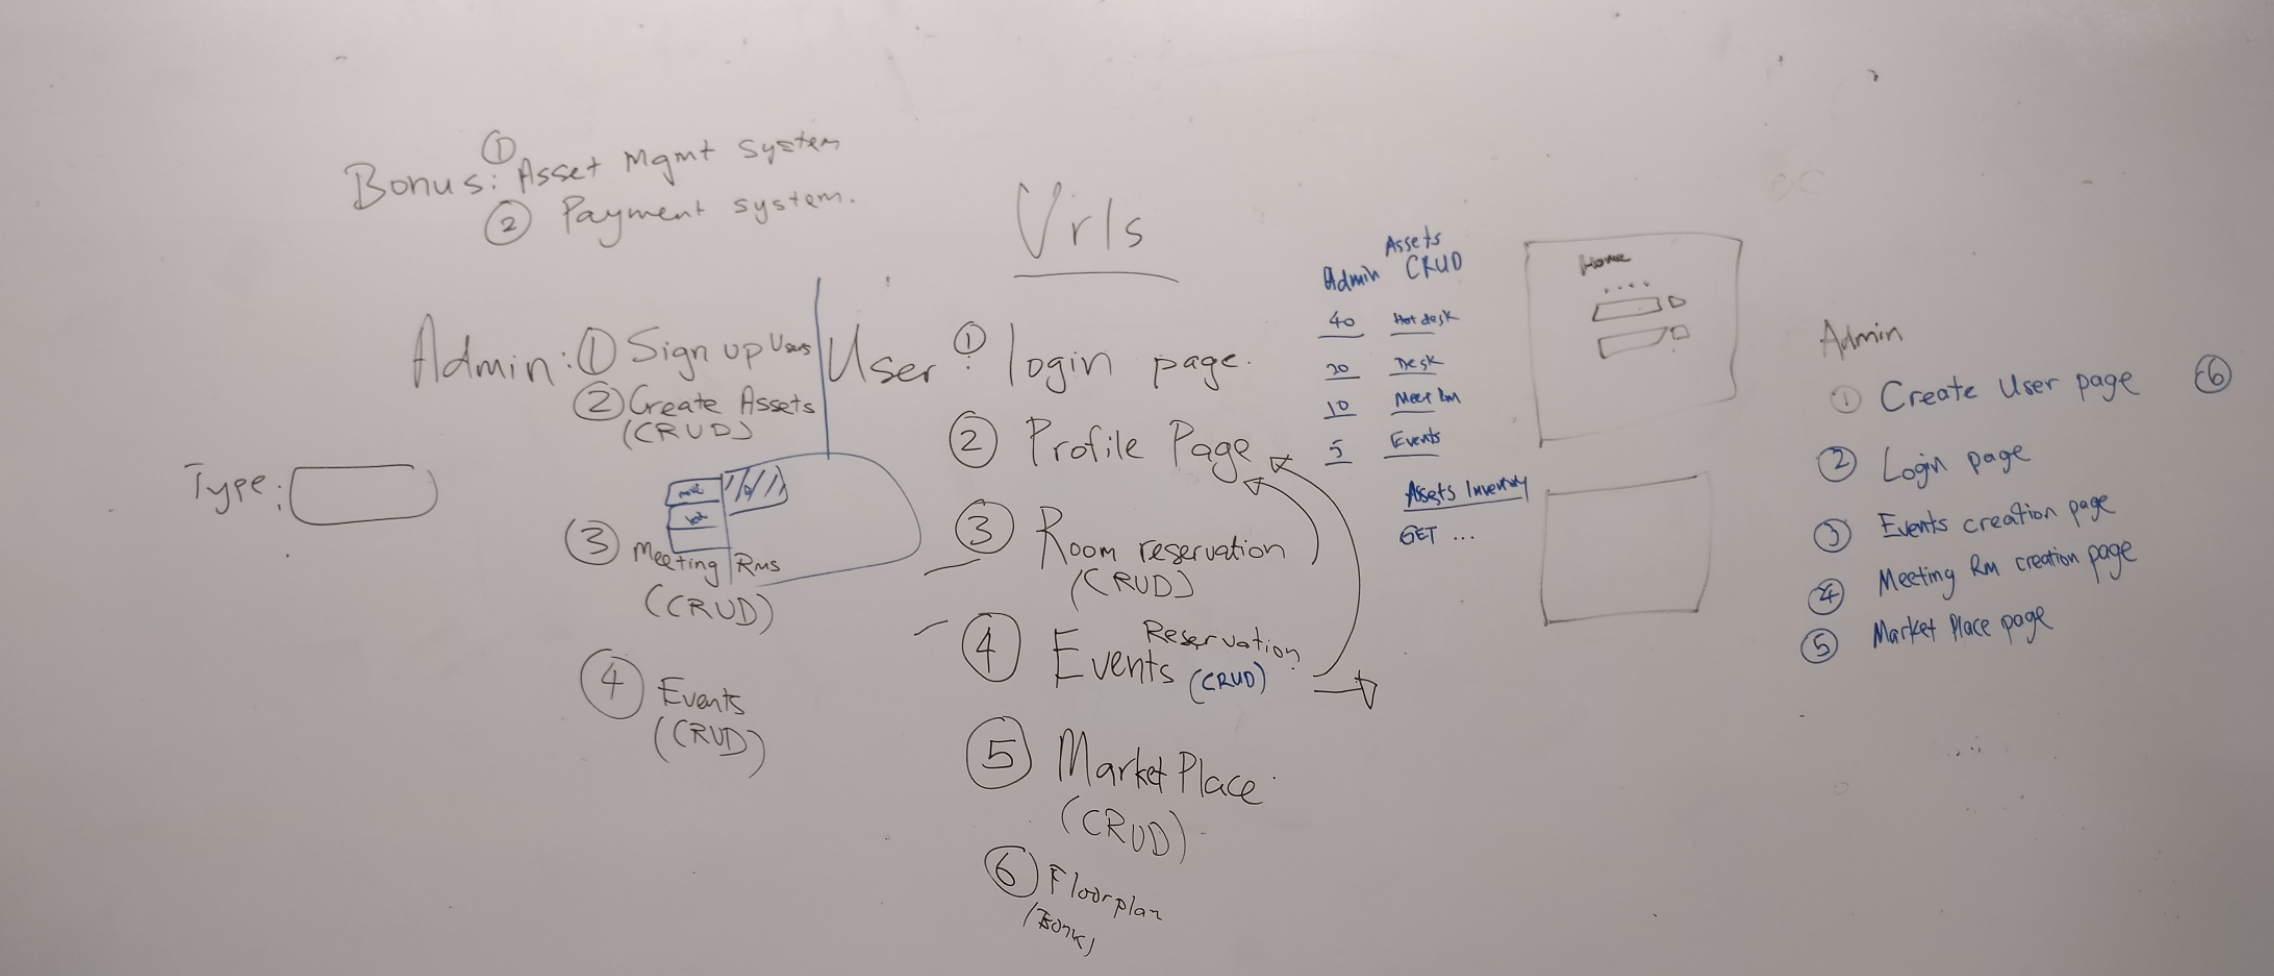 Bonus: ① Asset Mgmt system
② Payment system.
Urls
Admin: ① Sign up Users
② Create Assets
(CRUD)
Type:
③ Meeting Rms
(CRUD)
④ Events
(CRUD)
User: ① login page.
② Profile Page
③ Room reservation
(CRUD)
④ Events Reservation
(CRUD)
⑤ Market Place
(CRUD)
⑥ Floorplan
(Bonus)
Assets
Admin CRUD
40 Hot desk
20 Desk
10 Meet Rm
5 Events
Assets Inventory
GET ...
Home
Admin
① Create User page ⑥
② Login page
③ Events creation page
④ Meeting Rm creation page
⑤ Market Place page